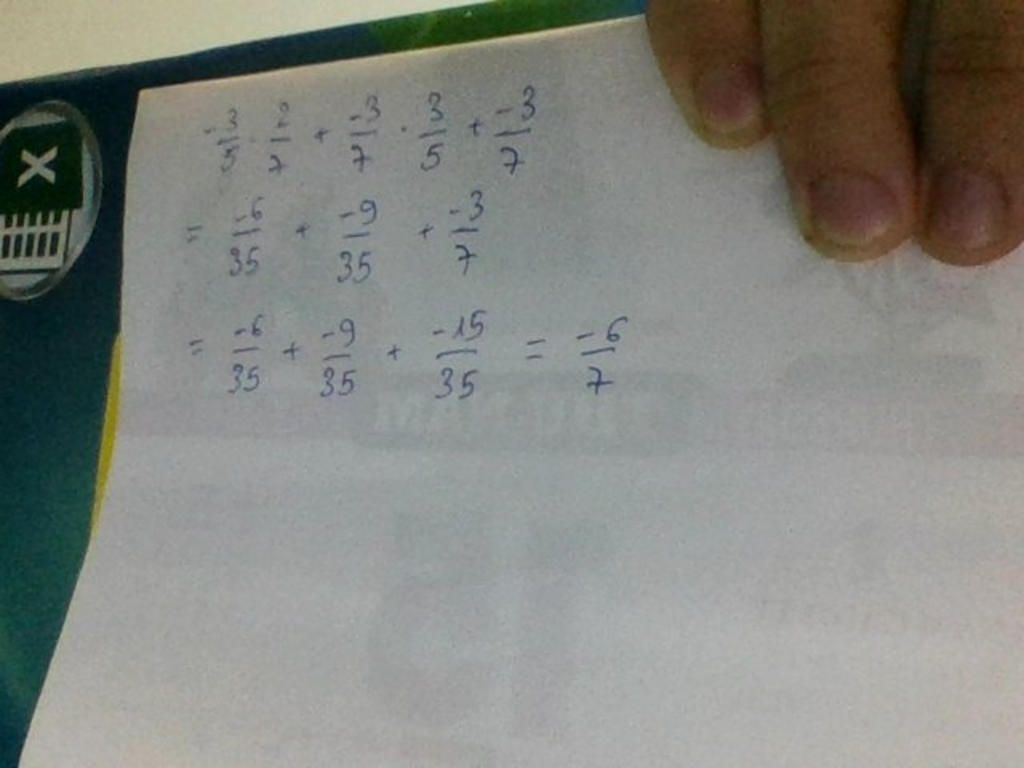 -3/5 · 2/7 + -3/7 · 3/5 + -3/7
= -6/35 + -9/35 + -3/7
= -6/35 + -9/35 + -15/35 = -6/7
X